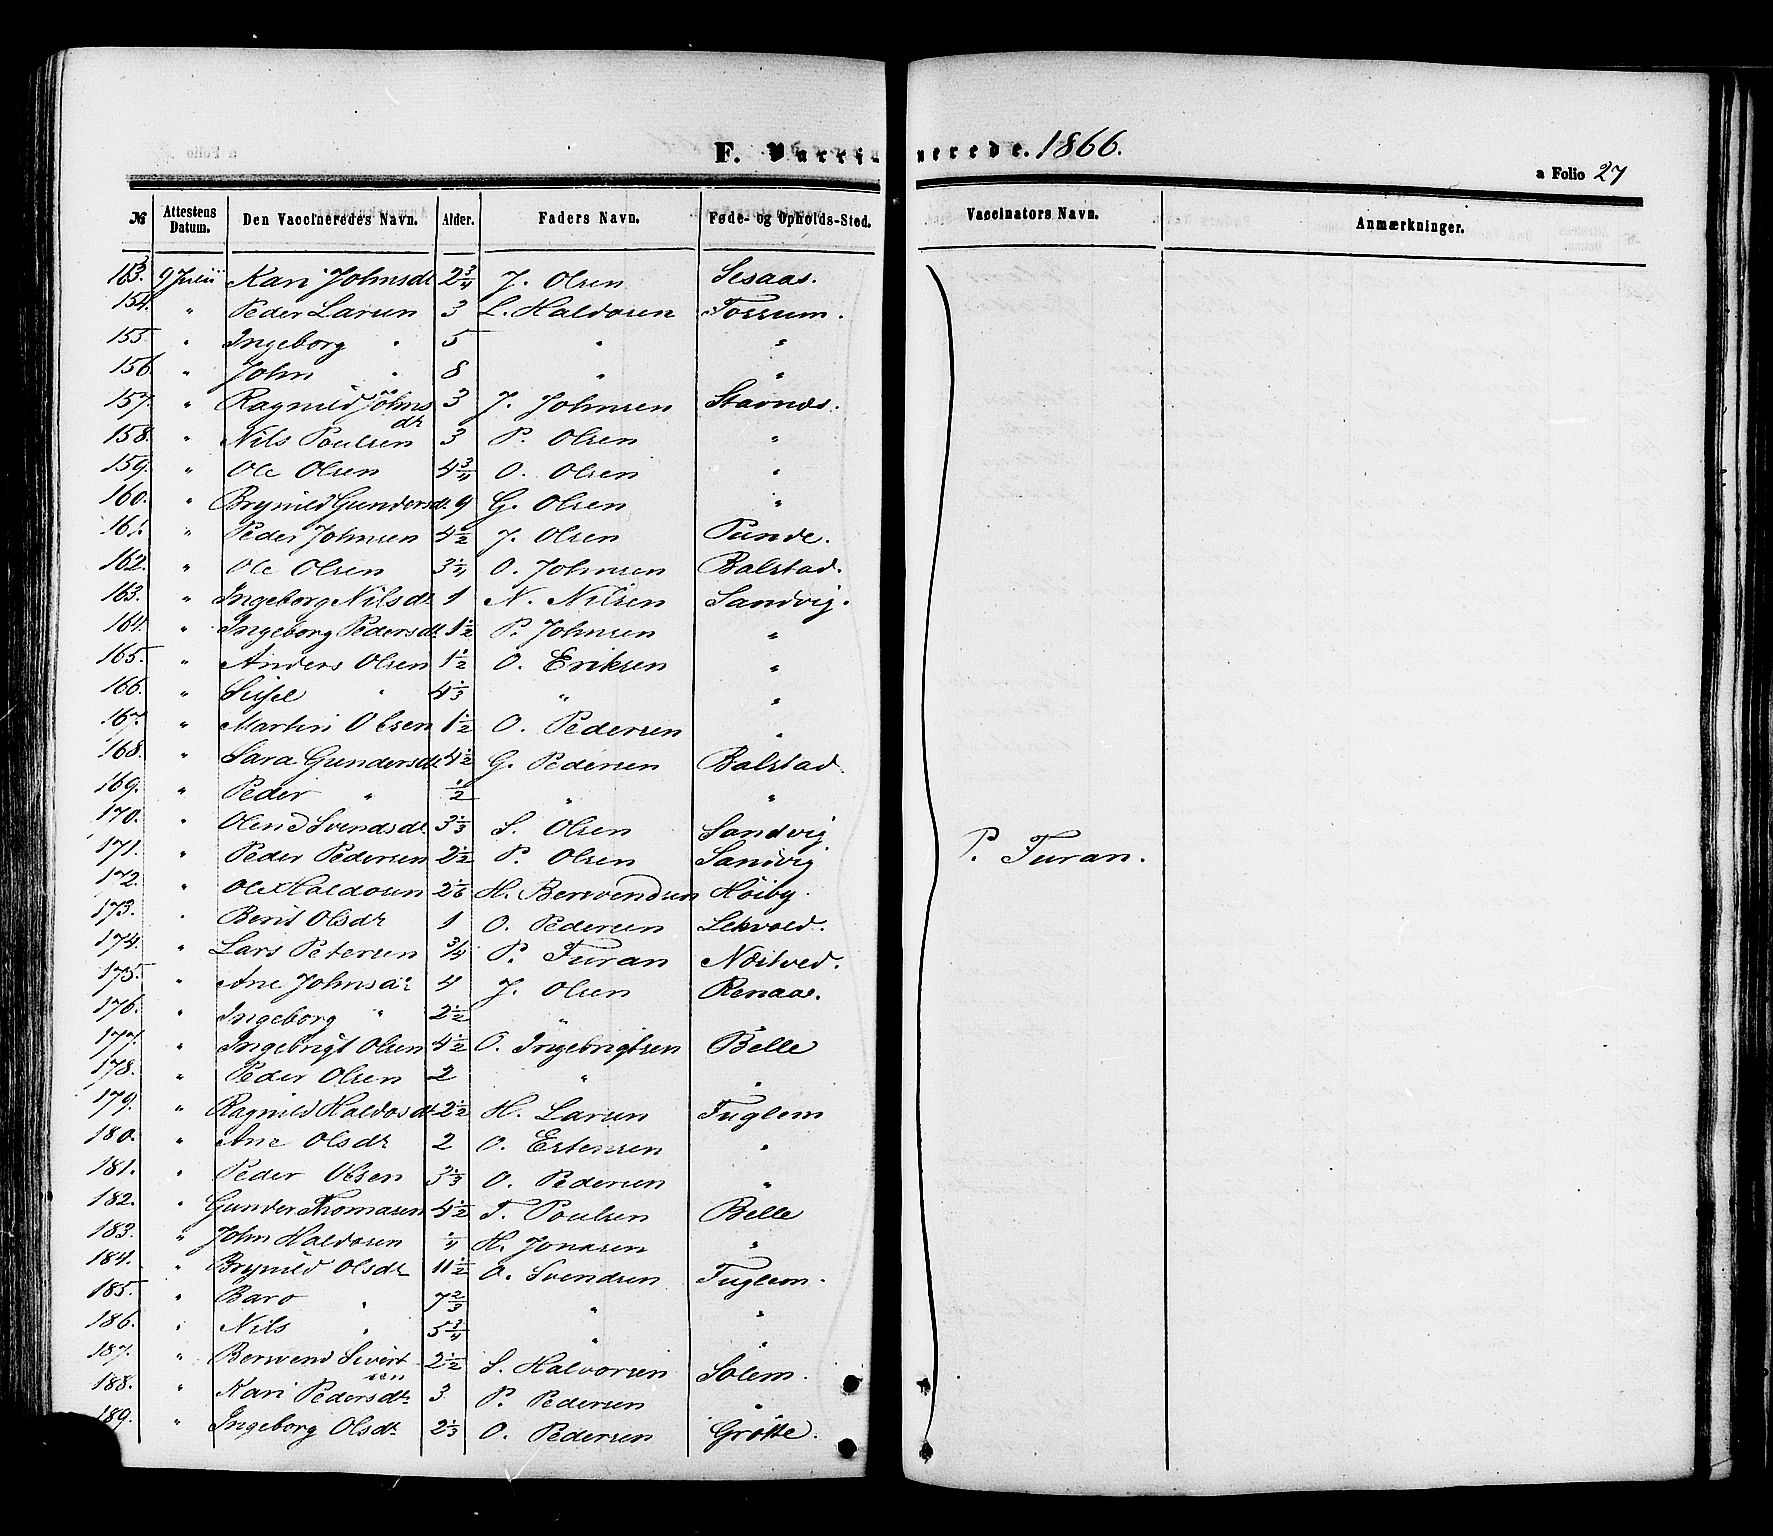 F. Vaccinerede. 1866.
a Folio 27
№ Attestens Datum. Den Vaccineredes Navn. Alder. Faders Navn. Føde- og Opholds-Sted. Vaccinators Navn. Anmærkninger.
153. 9 Juli Kari Johnsdt 2 3/4 J. Olsen Sesaas.
154. " Peder Larsen 3 L. Haldosen Fossum.
155. " Ingeborg " 5 " "
156. " John " 8 " "
157. " Ragnild Johnsdt 3 J. Johnsen Stavnæs.
158. " Nils Poulsen 3 P. Olsen "
159. " Ole Olsen 4 3/4 O. Olsen "
160. " Brynild Gundersdt. 9 G. Olsen "
161. " Peder Johnsen 4 1/2 J. Olsen
162. " Ole Olsen 3 1/4 O. Johnsen Balstad.
163. " Ingeborg Nilsdt 1 N. Nilsen Sandvig.
164. " Ingeborg Pedersdt 1 1/2 P. Johnsen "
165. " Anders Olsen 1 1/2 O. Eriksen "
166. " Sissel " 4 1/3 " "
167. " Martin Olsen 1 1/2 O. Pedersen "
168. " Sara Gundersdt 4 1/2 G. Pedersen Balstad
169. " Peder " 1/2 " "
170. " Olena Svendsdt. 3 1/3 S. Olsen Sandvig
171. " Peder Pedersen 2 1/2 P. Olsen Sandvig
P. Furan.
172. " Ole Haldosen 2 1/6 H. Berwendsen Høiby.
173. " Berit Olsdt 1 O. Pedersen Lekvold.
174. " Lars Petersen 3/4 P. Furan Næstved.
175. " Ane Johnsdt 4 J. Olsen Renaas.
176. " Ingeborg " 2 1/2 " "
177. " Ingebrigt Olsen 4 1/2 O. Ingebrigtsen Belle
178. " Peder Olsen 2 " "
179. " Ragnild Haldosdt 2 1/2 H. Larsen Fuglem
180. " Ane Olsdt 2 O. Estensen "
181. " Peder Olsen 3 1/3 O. Pedersen "
182. " Gunder Thomasen 4 1/2 T. Poulsen Belle
183. " John Haldosen 1/4 H. Jonasen "
184. " Brynild Olsdt 11 1/2 O. Svendsen Fuglem.
185. " Baro " 7 2/3 " "
186. " Nils " 5 3/4 " "
187. " Berwend Sivertsen 2 1/2 S. Halvorsen Solem.
188. " Kari Pedersdt. 3 P. Pedersen "
189. " Ingeborg Olsdt. 2 1/3 O. Pedersen Grøtte.